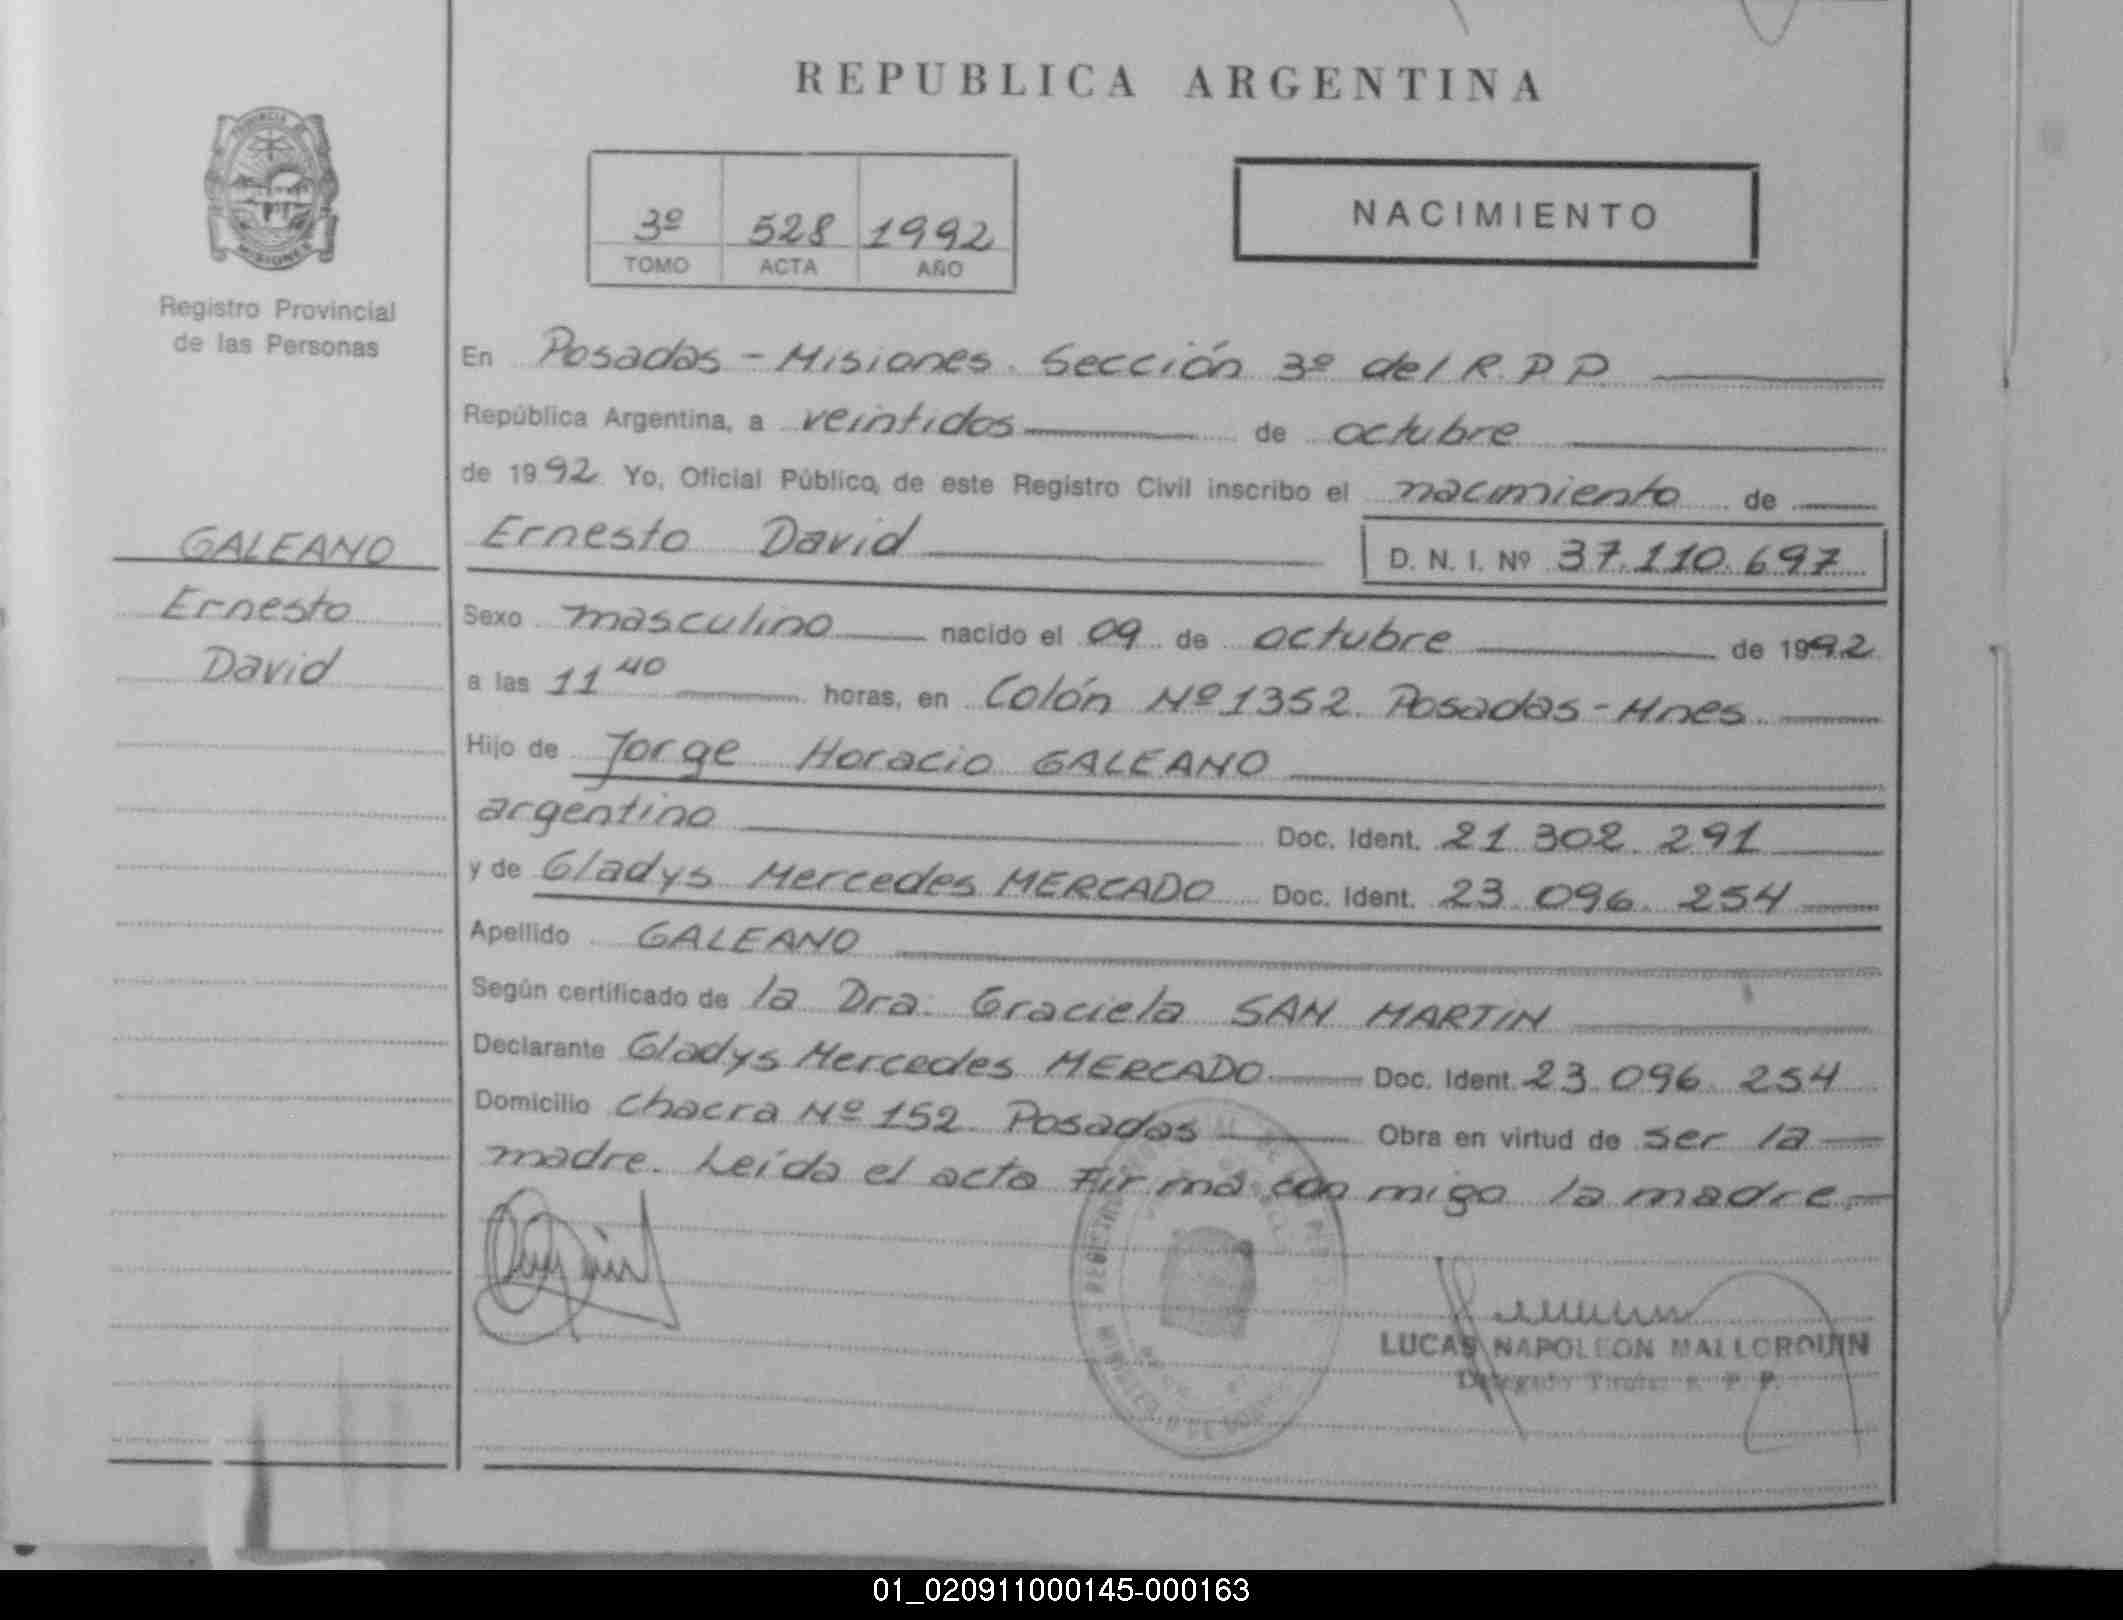 REPUBLICA ARGENTINA
PROVINCIA DE
MISIONES
Registro Provincial
de las Personas
3º 528 1992
TOMO ACTA AÑO
NACIMIENTO
En Posadas - Misiones. Sección 3º del R.P.P.
República Argentina, a veintidos de octubre
de 1992 Yo, Oficial Público, de este Registro Civil inscribo el nacimiento de
GALEANO
Ernesto
David
Ernesto David D. N. I. Nº 37.110.697
Sexo masculino nacido el 09 de octubre de 1992
a las 11 40 horas, en Colón Nº 1352. Posadas - Mnes.
Hijo de Jorge Horacio GALEANO
argentino Doc. Ident. 21.302.291
y de Gladys Mercedes MERCADO Doc. Ident. 23.096.254
Apellido GALEANO
Según certificado de la Dra. Graciela SAN MARTIN
Declarante Gladys Mercedes MERCADO Doc. Ident. 23.096.254
Domicilio chacra Nº 152. Posadas Obra en virtud de ser la
madre. Leída el acta firma con migo la madre.
LUCAS NAPOLEON MALLORQUIN
Delegado Titular R. P. P.
01_020911000145-000163